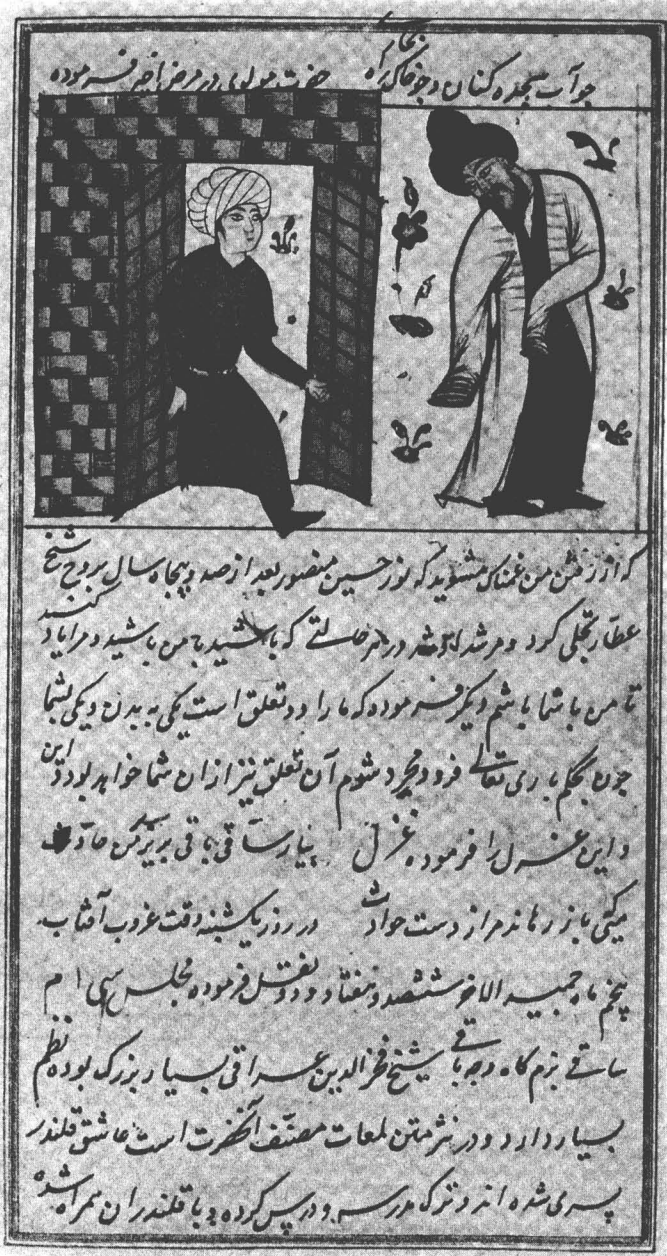 چو آب سجده کنان و چو خاک راه حضرت مولوی در مرض اخیر فرموده
که از رفتن من غمناک مشوید که نور حسین منصور بعد از صد و پنجاه سال بروح شیخ
عطار تجلی کرد و مرشد او شد در هر حالتی که باشید با من باشید و مرا یاد کنید
تا من با شما باشم دیگر فرموده که ما را دو تعلق است یکی به بدن و یکی بشما
چون بحکم باری تعالی فرد و مجرد شوم آن تعلق نیز از ان شما خواهد بود
و این غزل را فرموده غزل بیار ساقی باقی بریز
باز رهاند مرا ز دست حوادث در روز یکشنبه وقت غروب آفتاب
پنجم ماه جمید الاخر ششصد و هفتاد و دو نقل فرموده مجلس سی ام
ساقی بزم کاه وجه باقی شیخ فخر الدین عراقی بسیار بزرک بوده نظم
بسیار دارد و در نثر متن لمعات مصنف آنحضرت است عاشق قلندر
پسری شده اند و ترک مدرسه و درس کرده و با قلندران همراه شده